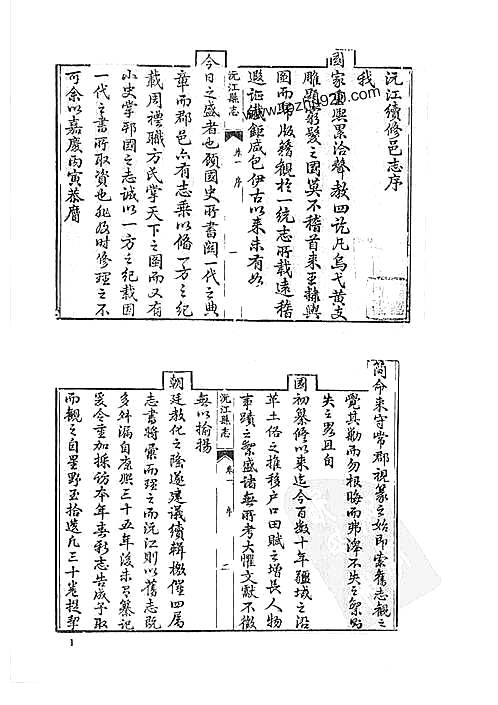 沅江續修邑志序
我
國家重熙累洽聲教四訖凡烏弋黃支
雕題窮髮之國莫不稽首來王隸輿
圖而聯版籍觀於一統志所載遠稽
遐証鐵鉅咸包伊古以來未有如
沅江縣志
卷一 序
一
今日之盛者也顧國史所書闊一代之典
章而郡邑亦有志乘以備一方之紀
載周禮職方氏掌天下之圖而又有
小史掌邦國之志誠以一方之紀載固
一代之書所取資也非及時修理之不
可余以嘉慶丙寅恭膺
簡命來守常郡視篆之始即索舊志觀之
覺其勘而勿根晦而弗淳不失之
失之畧且自
國初纂修以來迄今百數十年疆域之沿
革土俗之推移戶口田賦之增長人物
事蹟之繁盛諸無所考大懼文獻不徵
無以揄揚
沅江縣志
卷一 序
二
朝廷教化之隆遂建議續輯檄催四属
志書將彙而理之而沅江則以舊志既
多舛漏自康熙三十五年後未另纂記
爰令重加採訪本年春新志告成予取
而觀之自星野至拾遺凡三十卷提挈
1
www.shuzhi9220.com